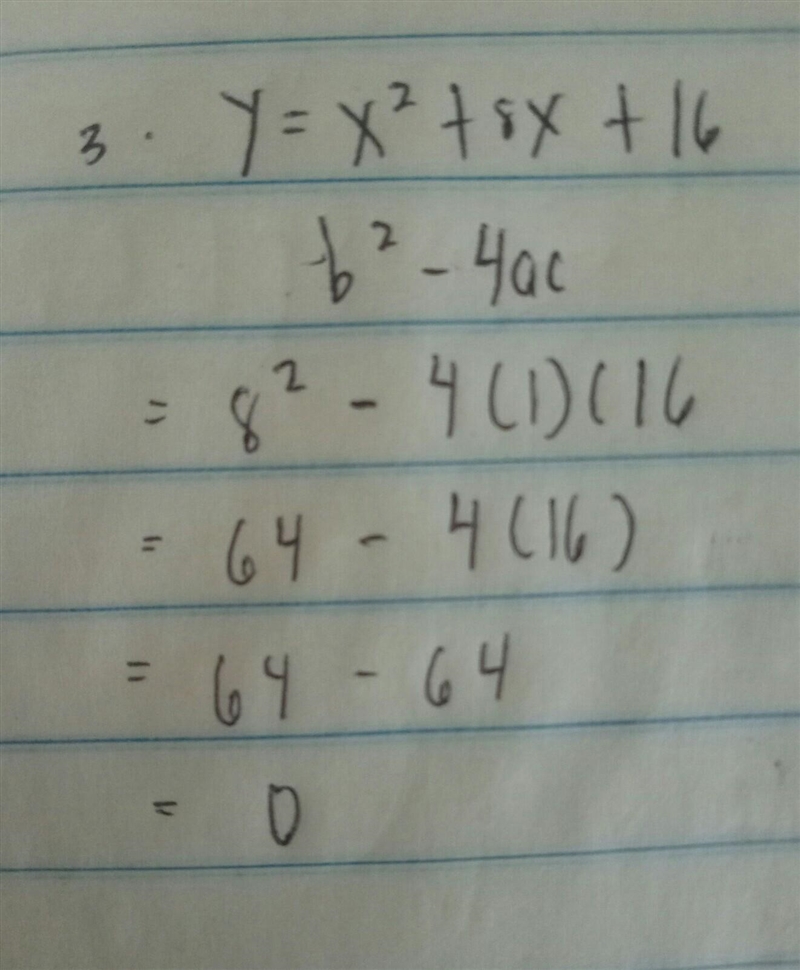 3. y = x² + 8x + 16
b² - 4ac
= 8² - 4(1)(16
= 64 - 4(16)
= 64 - 64
= 0